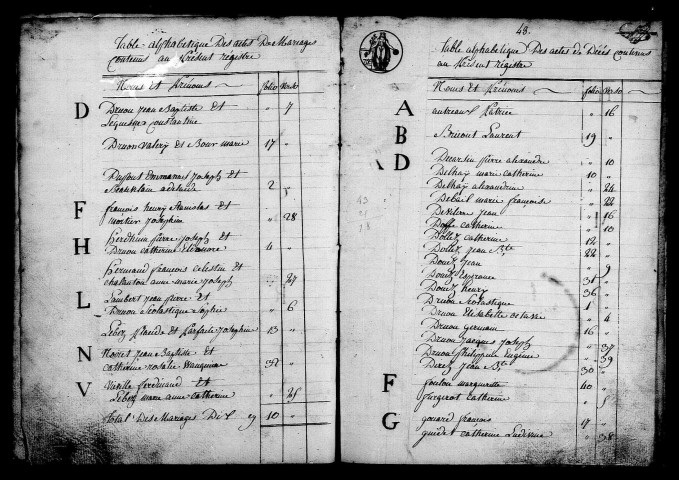 Table alphabetique Des actes De Mariages
contenus au présent régistre
Noms et prénoms folio Verso
D
Druon Jean Baptiste et " 7
Lequesne Constantine
Druon Valery et Bour marie 17 "
Dussout Emmanuel Joseph et
adelaide 2 "
F
françois henry Stanislas et
mortier Josephine " 28
H
pierre Joseph et
Druon catherine Eléonore 4 "
hermand françois celestin et
anne marie Joseph " 27
L
Lambert Jean pierre et
Druon Scolastique Sophie " 6
Leboy placide et parfaite Josephine 13 "
N
Noiret Jean Baptiste et
catherine rosalie 32 "
V
Vieille ferdinand et
Leboy marie anne catherine " 25
total Des Mariages Dix cy 10 "
48.
Table alphabetique Des actes de Décès contenus
au présent régistre
Noms et prénoms folio Verso
A
patrice " 16
B
Bricout Laurent 19 "
D
pierre alexandre " 10
Delhay marie catherine 10 "
Delhay alexandrine " 24
Debail marie françoise " 22
Jean " 16
Doffe catherine " 10
Dollez catherine 12 "
Dollez Jean Bte 22 "
Douez Jean " 9
Douez 31 "
Douez henry 36 "
Druon Scolastique 1 "
Druon Elisabette octavie " 4
Druon germain 16 "
Druon Jacques Joseph " 37
Druon philippele Eugénie " 39
Jean Bte 30 "
F
foulon marguerite 40 "
furgerot catherine " 5
G
gouard françois 17 "
guidez catherine Ludivine " 38